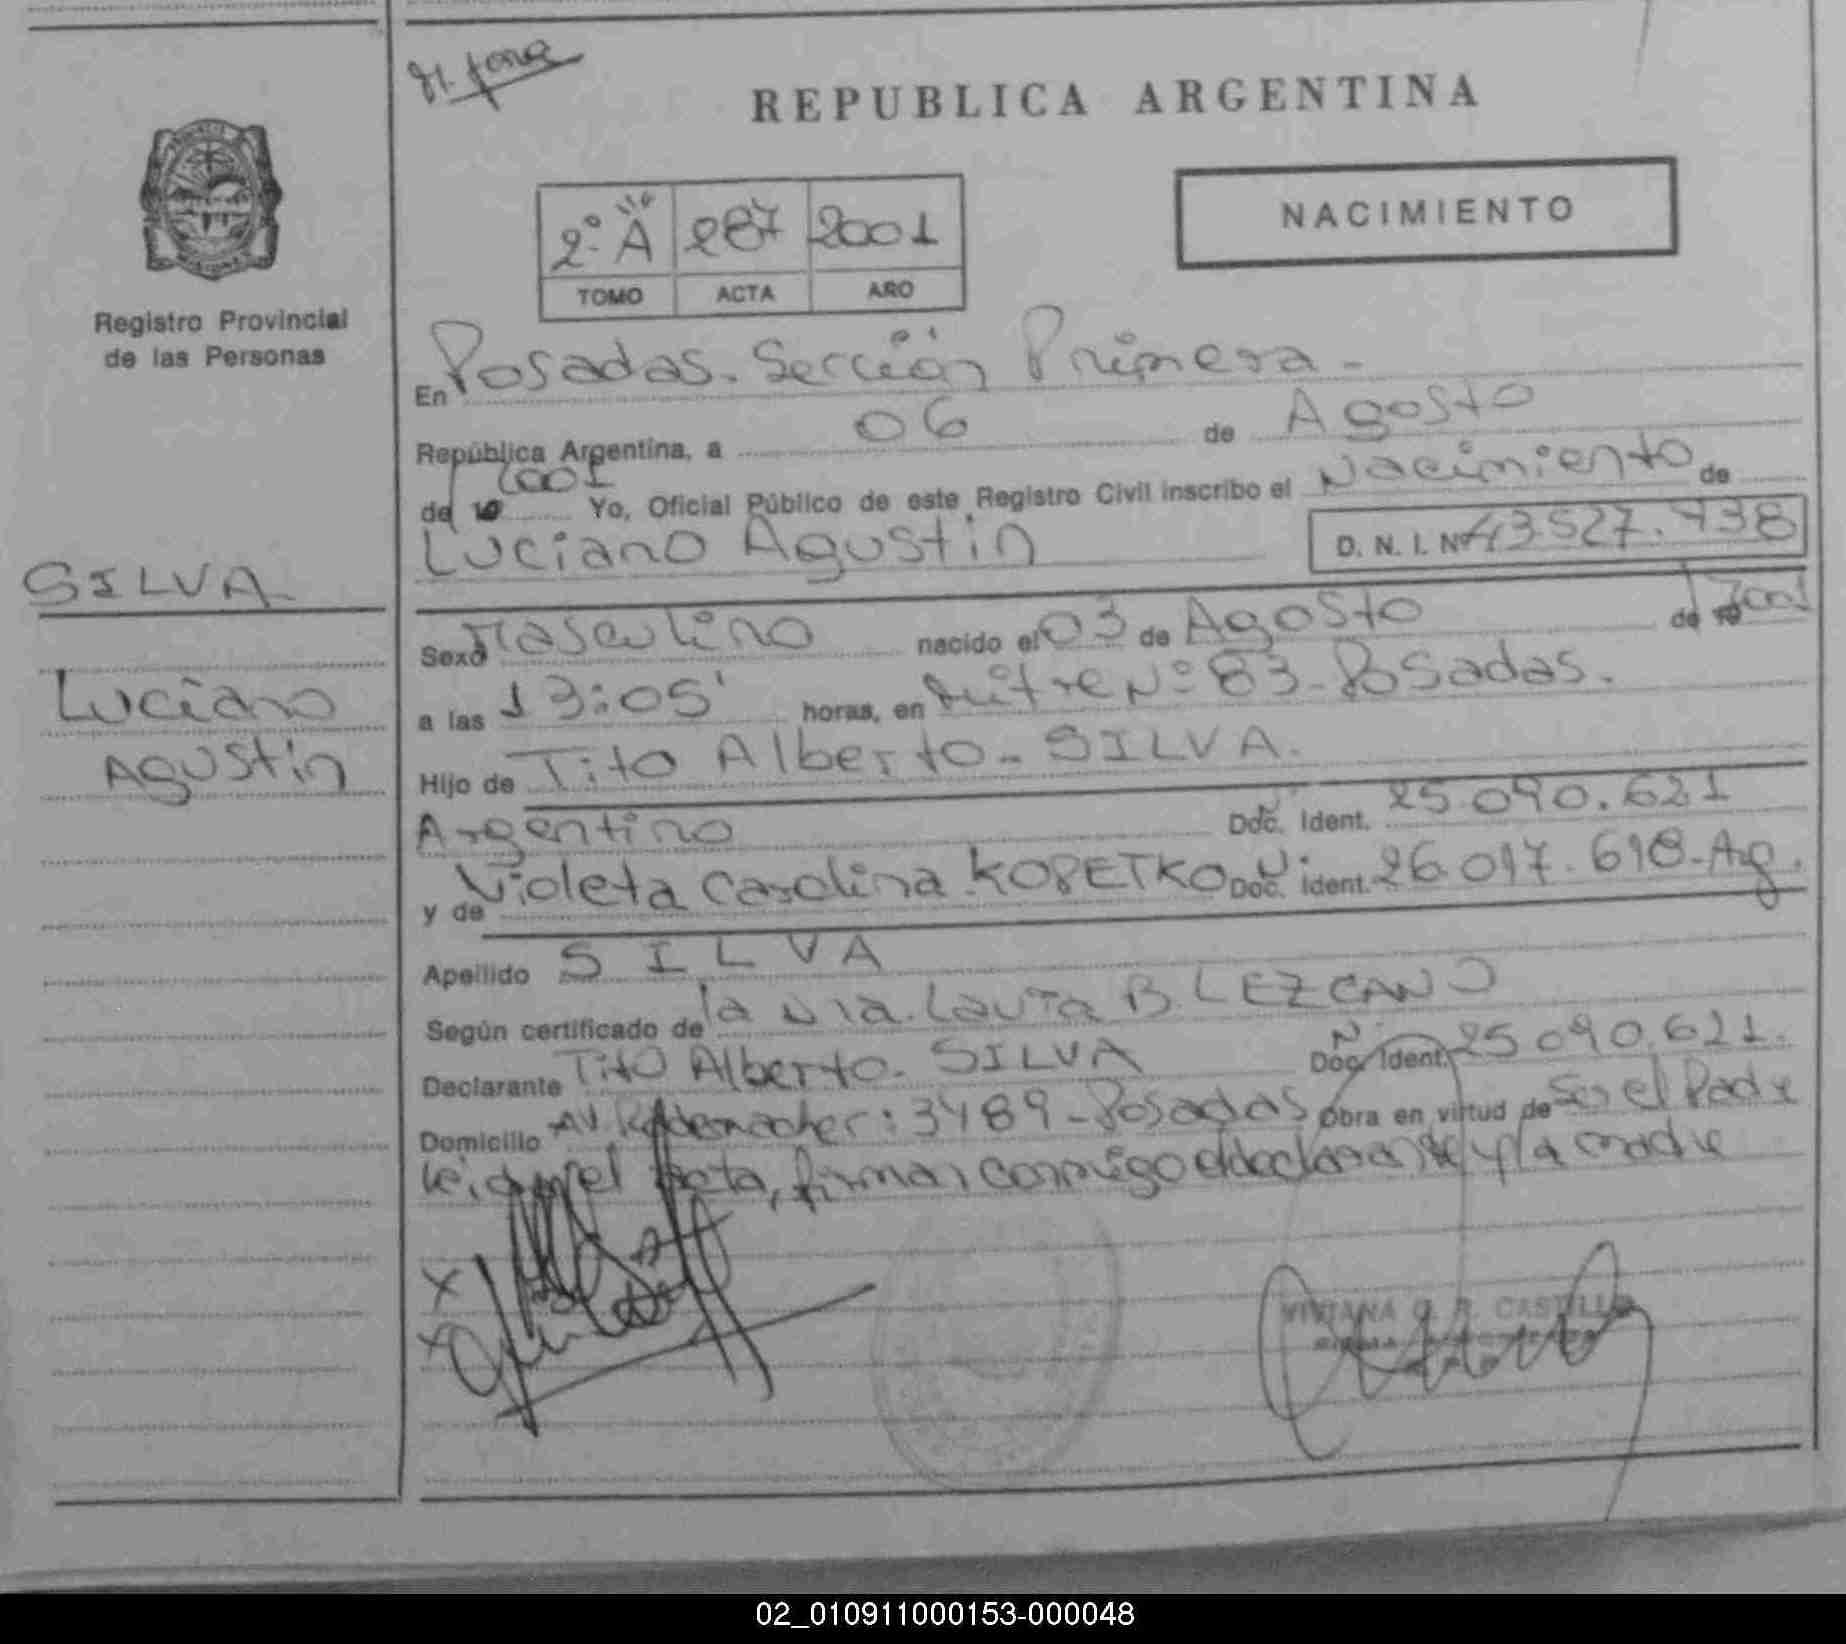 REPUBLICA ARGENTINA
NACIMIENTO
2º A 287 2001
TOMO ACTA AÑO
Registro Provincial
de las Personas
En Posadas. Sección Primera -
República Argentina, a 06 de Agosto
de 19 2001 Yo, Oficial Público de este Registro Civil inscribo el Nacimiento de
Luciano Agustín D. N. I. Nº 43.527.738
SILVA
Luciano
Agustín
Sexo Masculino nacido el 03 de Agosto de 19 2001
a las 13:05' horas, en Mitre Nº 83 - Posadas.
Hijo de Tito Alberto - SILVA.
Argentino Doc. Ident. 25.090.621
y de Violeta Carolina KOPETKO Doc. Ident. 26.017.618 - Arg.
Apellido SILVA
Según certificado de la Laura B. LEZCANO
Declarante Tito Alberto - SILVA Doc. Ident. 25.090.621.
Domicilio Av. : 3489 - Posadas Obra en virtud de Ser el Padre
el acta, firman conmigo el declarante y la madre
x
x
VIVIANA G. R. CASTILLO
02_010911000153-000048